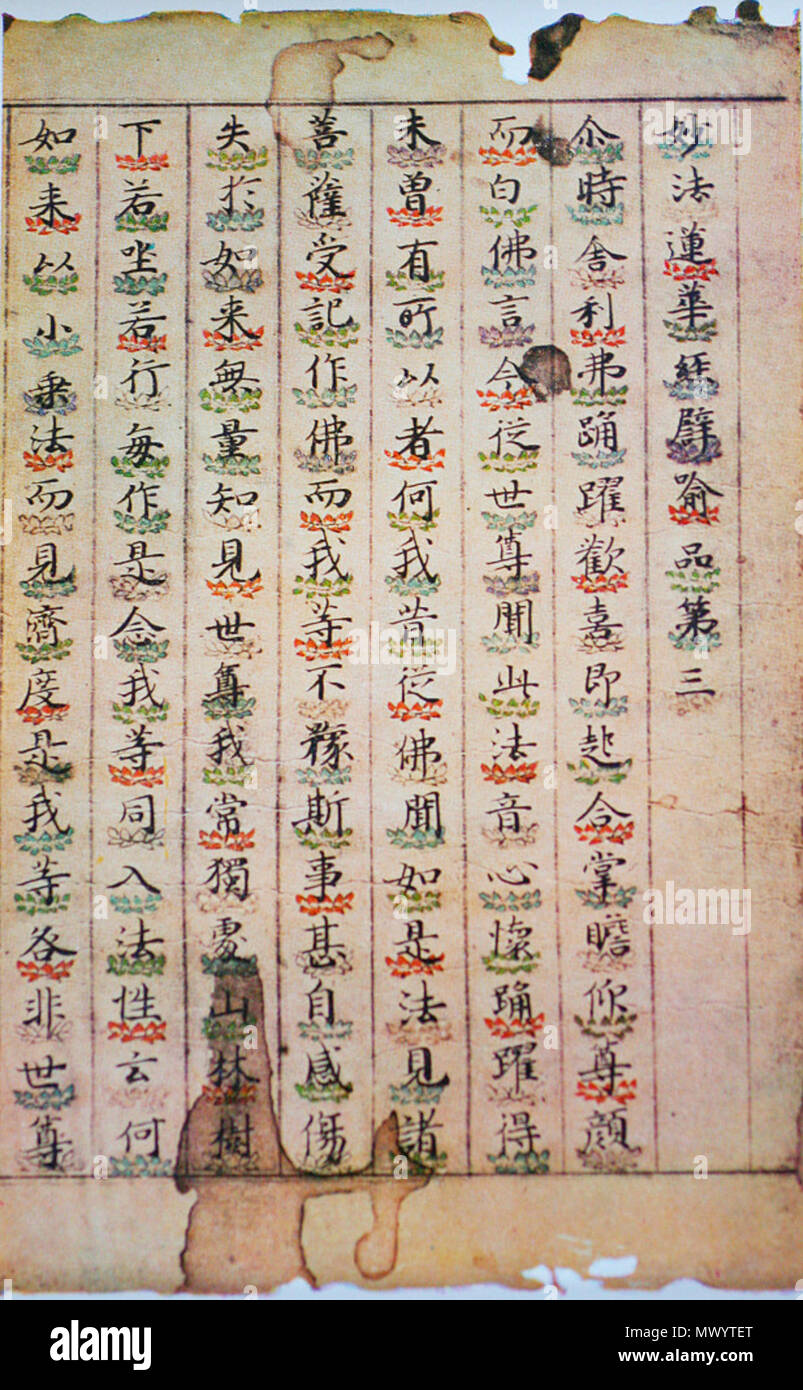 妙法蓮華経辟喻品第三
尒時舎利弗踊躍歡喜即起合掌瞻仰尊顔
而白佛言今従世尊聞此法音心懐踊躍得
未曽有所以者何我昔従佛聞如是法見諸
菩薩受記作佛而我等不豫斯事甚自感傷
失於如来無量知見世尊我常獨處山林樹
下若坐若行毎作是念我等同入法性云何
如来以小乗法而見濟度是我等各非世尊
alamy
Image ID: MWYTET
www.alamy.com